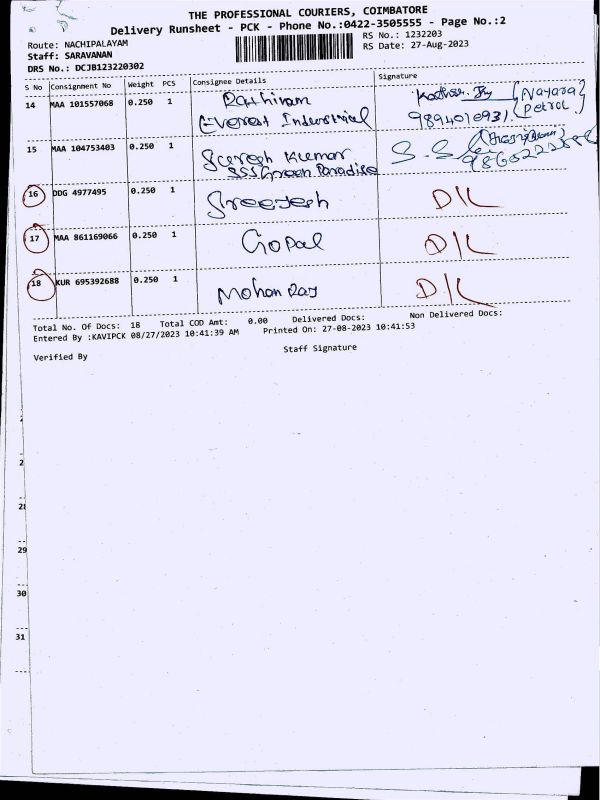 THE PROFESSIONAL COURIERS, COIMBATORE
Delivery Runsheet - PCK - Phone No.:0422-3505555 - Page No.:2
Route: NACHIPALAYAM
RS No.: 1232203
Staff: SARAVANAN
RS Date: 27-Aug-2023
DRS No.: DCJB123220302
S No Consignment No Weight PCS Consignee Details Signature
14 MAA 101557068 0.250 1 Rathiram
Everest Industrial 9894010931 {Nayara Petrol}
15 MAA 104753403 0.250 1 Suresh Kumar
SSS Green Paradise
16 DDG 4977495 0.250 1 Sreejesh D/L
17 MAA 861169066 0.250 1 Gopal D/L
18 KUR 695392688 0.250 1 Mohan Raj D/L
Total No. Of Docs: 18 Total COD Amt: 0.00 Delivered Docs: Non Delivered Docs:
Entered By :KAVIPCK 08/27/2023 10:41:39 AM Printed On: 27-08-2023 10:41:53
Verified By Staff Signature
29
30
31